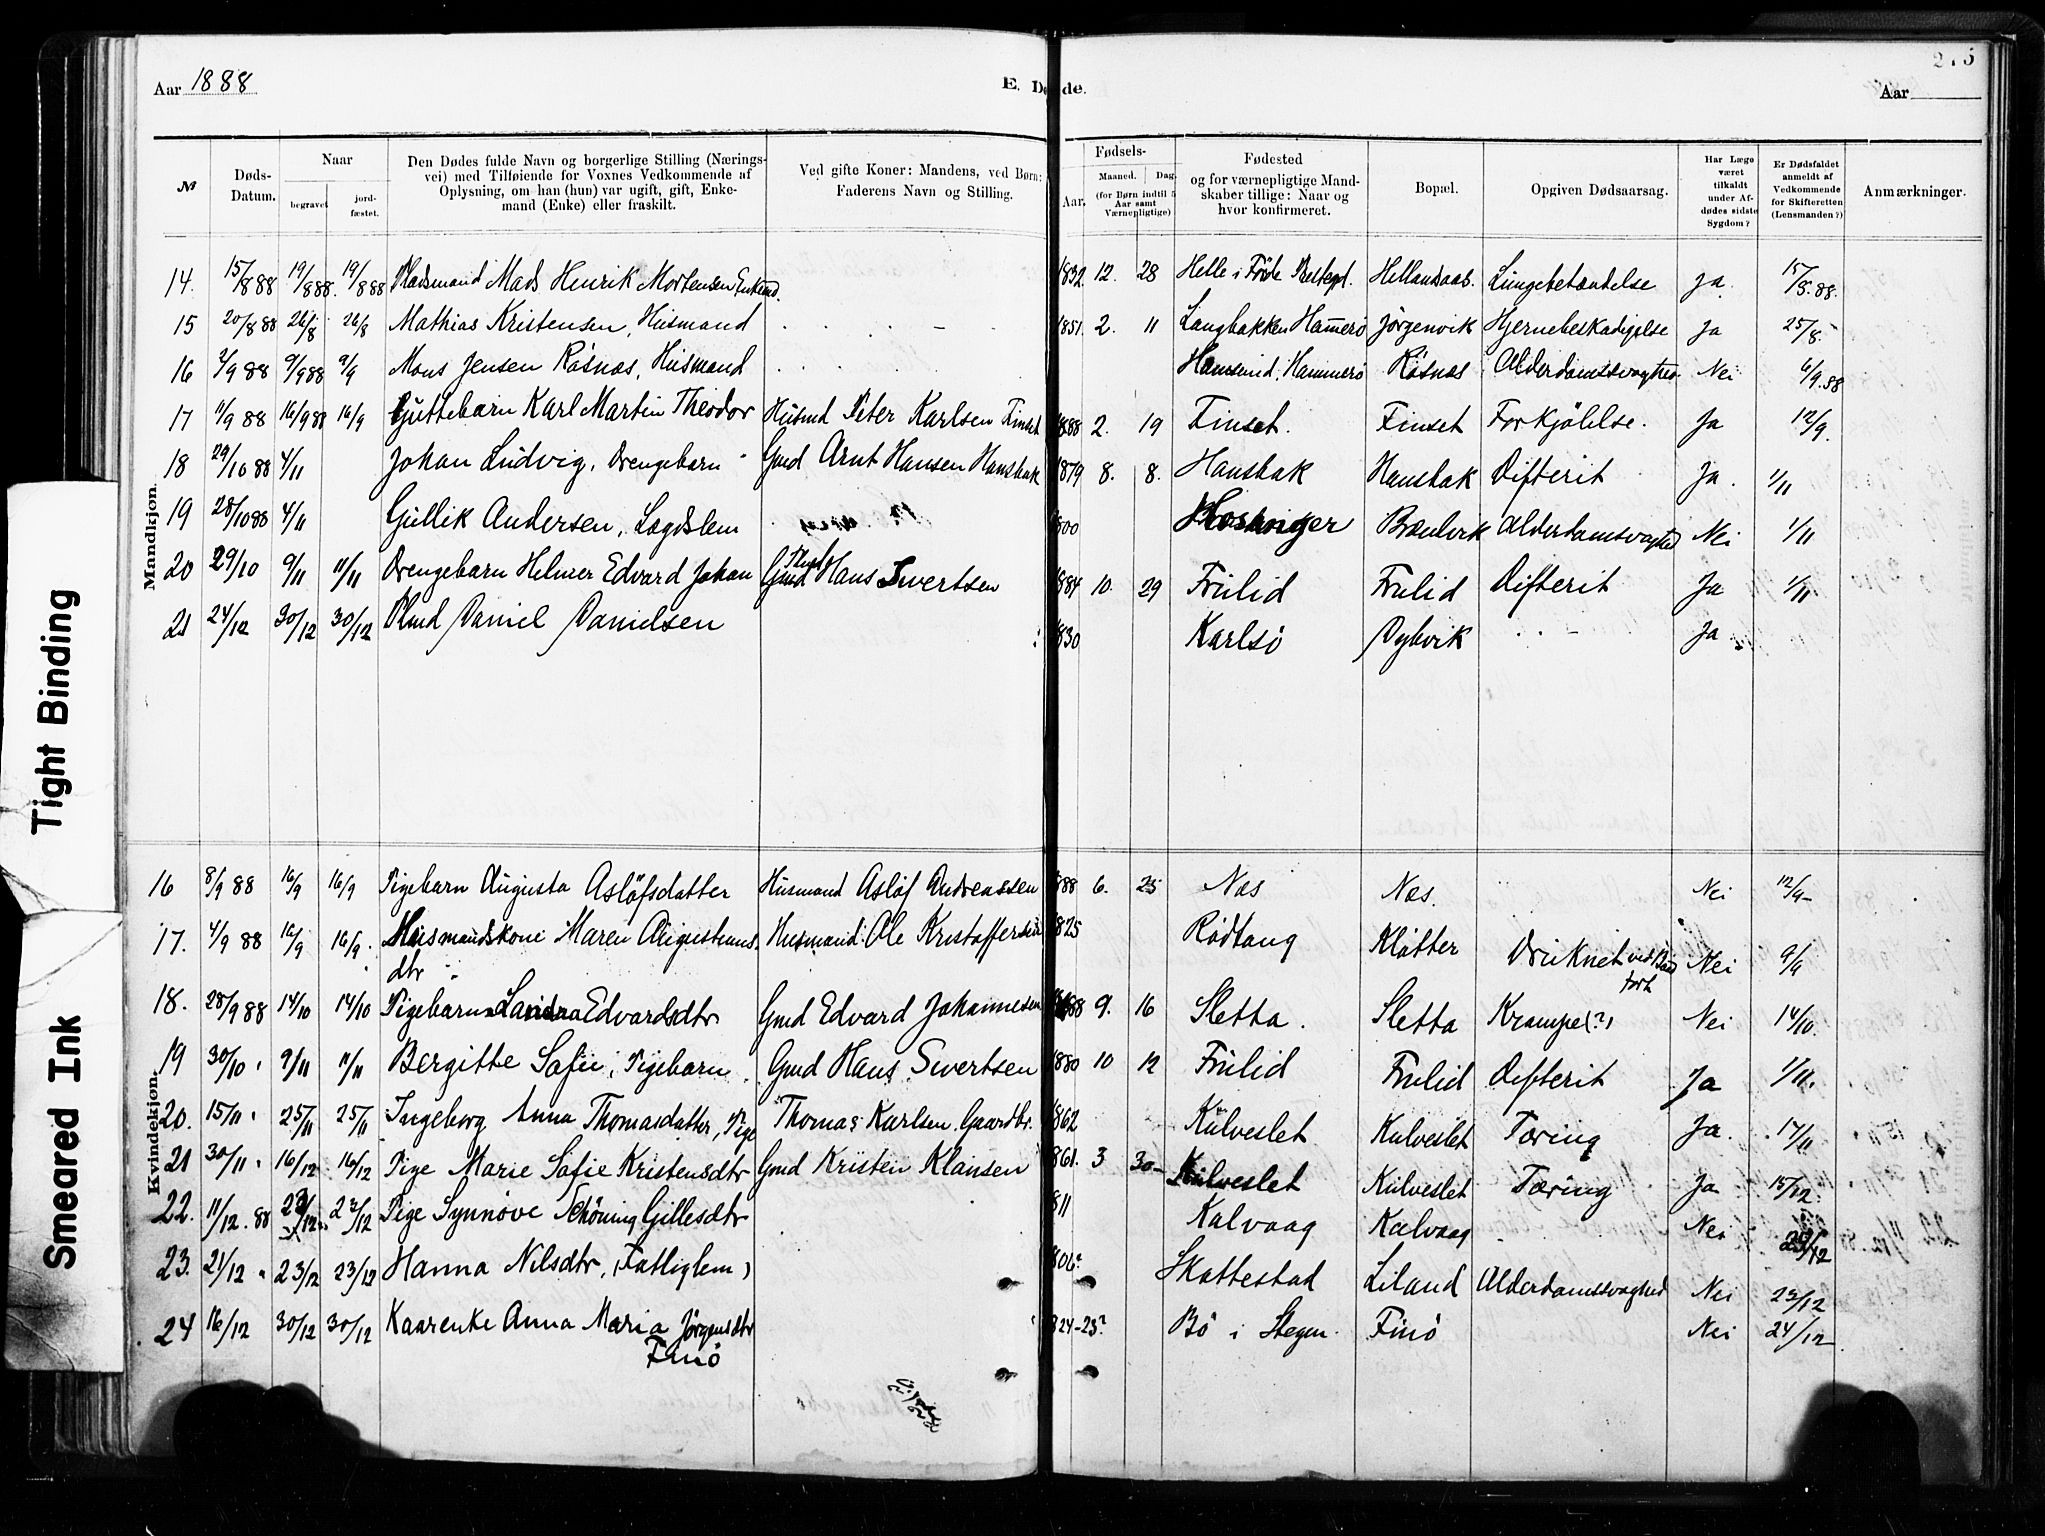 Aar 1888
E. Døde.
Aar
Tight Binding
Smeared Ink
№
Døds-Datum.
Naar
begravet
jord-fæstet.
Den Dødes fulde Navn og borgerlige Stilling (Nærings-
vei) med Tilføiende for Voxnes Vedkommende af
Oplysning, om han (hun) var ugift, gift, Enke-
mand (Enke) eller fraskilt.
Ved gifte Koner: Mandens, ved Børn:
Faderens Navn og Stilling.
Fødsels-
Aar.
Maaned.
Dag.
(for Børn indtil 5
Aar samt
Værnepligtige)
Fødested
og for værnepligtige Mand-
skaber tillige: Naar og
hvor konfirmeret.
Bopæl.
Opgiven Dødsaarsag.
Har Læge
været
tilkaldt
under Af-
dødes sidste
Sygdom?
Er Dødsfaldet
anmeldt af
Vedkommende
for Skifteretten
(Lensmanden?)
Anmærkninger.
Mandkjøn.
14. 15/8 88 19/8 88. 19/8 88 Pladsmand Mads Henrik Mortensen Enkemd. 1832. 12. 28 Helle i Hellandsaas. Lungebetændelse Ja. 15/8. 88.
15 20/8 88 26/8 26/8 Mathias Kristensen, Husmand 1851. 2. 11 Langbakken Hamerø Jørgenvik Hjernebeskadigelse Ja 25/8.
16 2/9 88 9/9 88 9/9 Mons Jensen Røsnæs, Husmand Hammerø Røsnæs Alderdomssvaghed Nei 6/9. 88
17 11/9 88 16/9 88 16/9 Guttebarn Karl Martin Theodor Husmd Peter Karlsen Finset 1888 2. 19 Finset. Finset Forkjølelse. Ja 12/9.
18 29/10 88 4/11 Johan Ludvig, Drengebarn Gmd Arnt Hansen Hansbak 1879 8. 8. Hansbak Hansbak Difterit Ja. 1/11
19 28/10 88 4/11 Gullik Andersen, Lægdslem 1800 Alderdomsvaghed Nei 1/11
20 29/10 9/11 11/11 Drengebarn Helmer Edvard Johan Gmd Hans Sivertsen 1884 10. 29 Frulid Frulid Difterit Ja 1/11.
21 24/12 30/12 30/12 Plmd Daniel Danielsen 1830 Karlsö Dybvik Ja
Kvindekjøn.
16 8/9 88 16/9 16/9 Pigebarn Augusta Asløfsdatter Husmand Asløf Andreassen 1888 6. 25 Næs Næs. Nei 12/9
17. 4/9 88 16/9 16/9. Husmandskone Maren Augustinus- Husmand Ole Kristoffersen 1825 Rødtang Kløtter Druknet ved Baad- Nei 9/9
dtr fort
18. 28/9 88 14/10 14/10 Pigebarn Edvardsdtr Gmd Edvard Johannesen 1888 9. 16 Sletta. Sletta Krampe(?) Nei 14/10.
19 30/10 9/11 11/11 Bergitte Sofie, Pigebarn Gmd Hans Sivertsen 1880 10 12 Frulid Frulid Difterit Ja 1/11.
20. 15/11 25/11 25/11 Ingeborg Anna Thomasdatter, Pige Thomas Karlsen. Gaardbr. 1862 Kulveslet Kulveslet Tæring Ja. 17/11
21 30/11 16/12 16/12 Pige Marie Sofie Kristensdtr Gmd Kristen Klausen 1861. 3 30 Kulveslet Kulveslet Tæring Ja 15/12.
22. 11/12. 88 23/12. 23/12 Pige Synnøve Schöning Gillesdtr 1811 Kalvaag Kalvaag Nei 23/12
23. 21/12 23/12 23/12 Hanna Nilsdtr, (Fattiglem) 1806? Skottestad Liland Alderdomssvaghed Nei 23/12
24 16/12 30/12 30/12 Kaarenke Anna Maria Jörgensdtr 1824-25? Bö i Stegen. Finö Nei 24/12
Finö